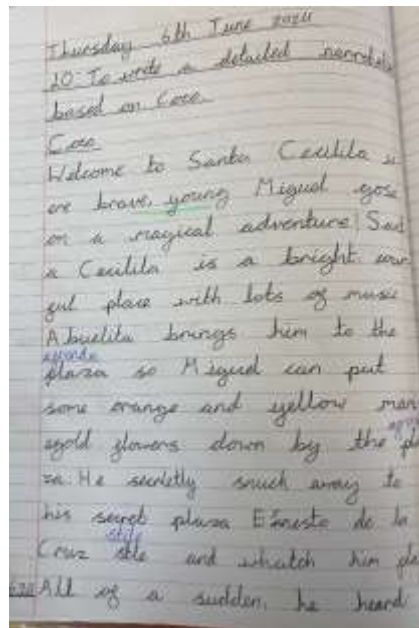 Thursday 6th June 2024
LO: To write a detailed narrative
based on Coco.
Coco
Welcome to Santa Cecilila
ere brave, young Miguel gose
on a magical adventure! Sant
a Cecilila is a bright
gul place with lots of music
Abuelita brings him to the
plaza so Miguel can put
some orange and yellow mar
agold flowers down by the
za. He secritly snuck away to
his secret plaza Ernesto de la
Cruz and whatch him pla
All of a sudden, he heard